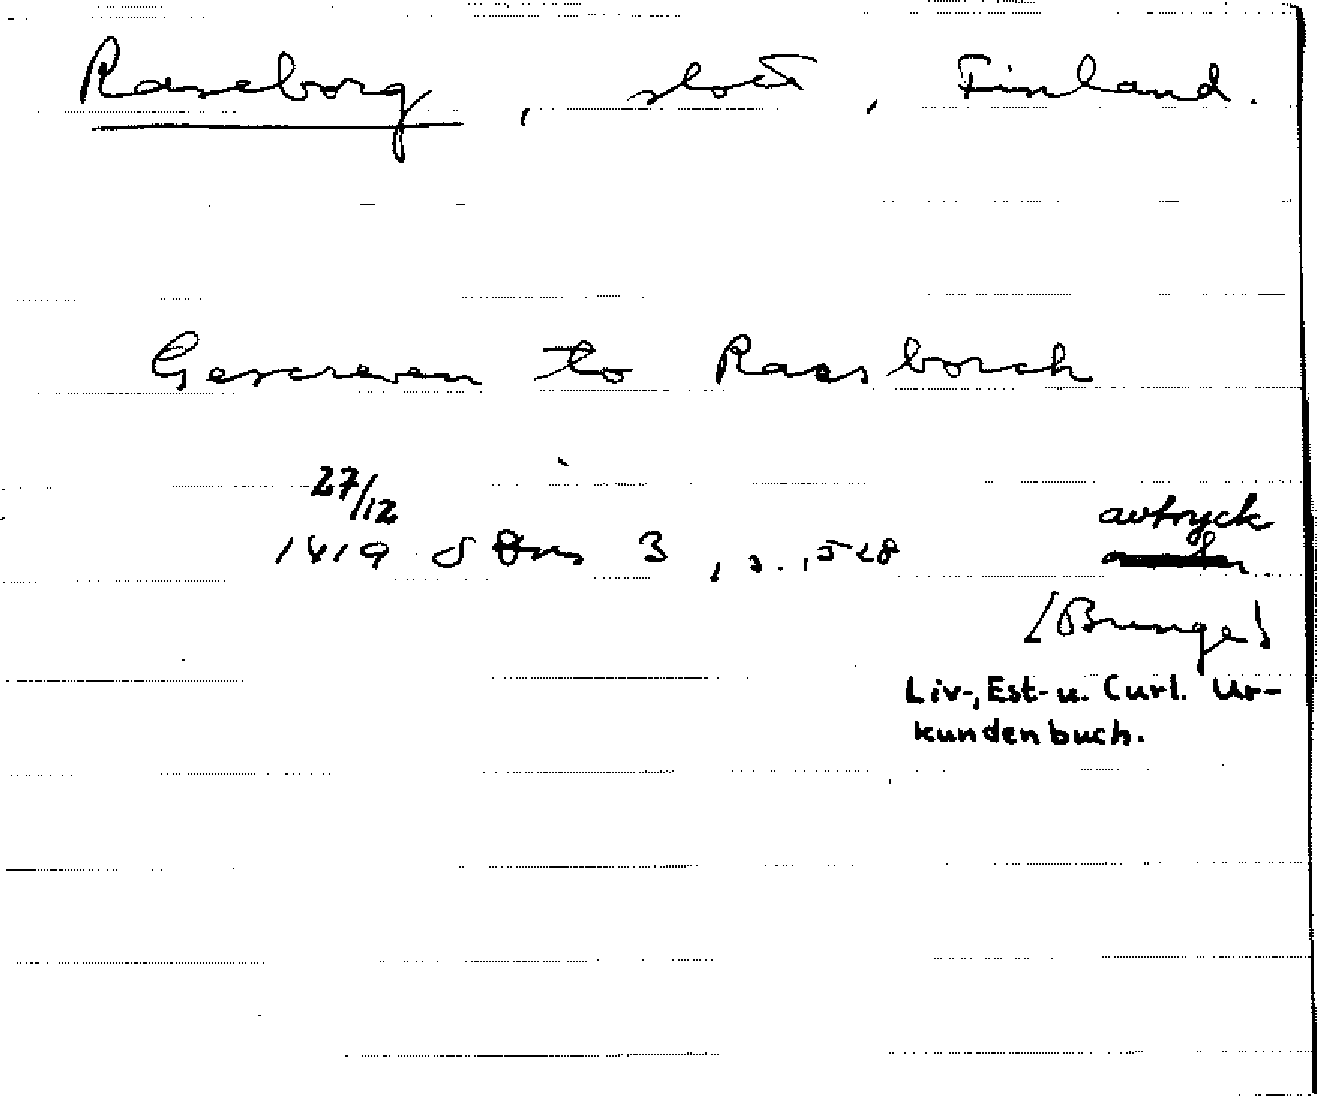 Raseborg, slott, Finland.
Gescreven to Raasborch
27/12
1419 S Dns 3, s. 528
avtryck
(Bunge)
Liv-, Est- u. Curl. Ur-
kundenbuch.